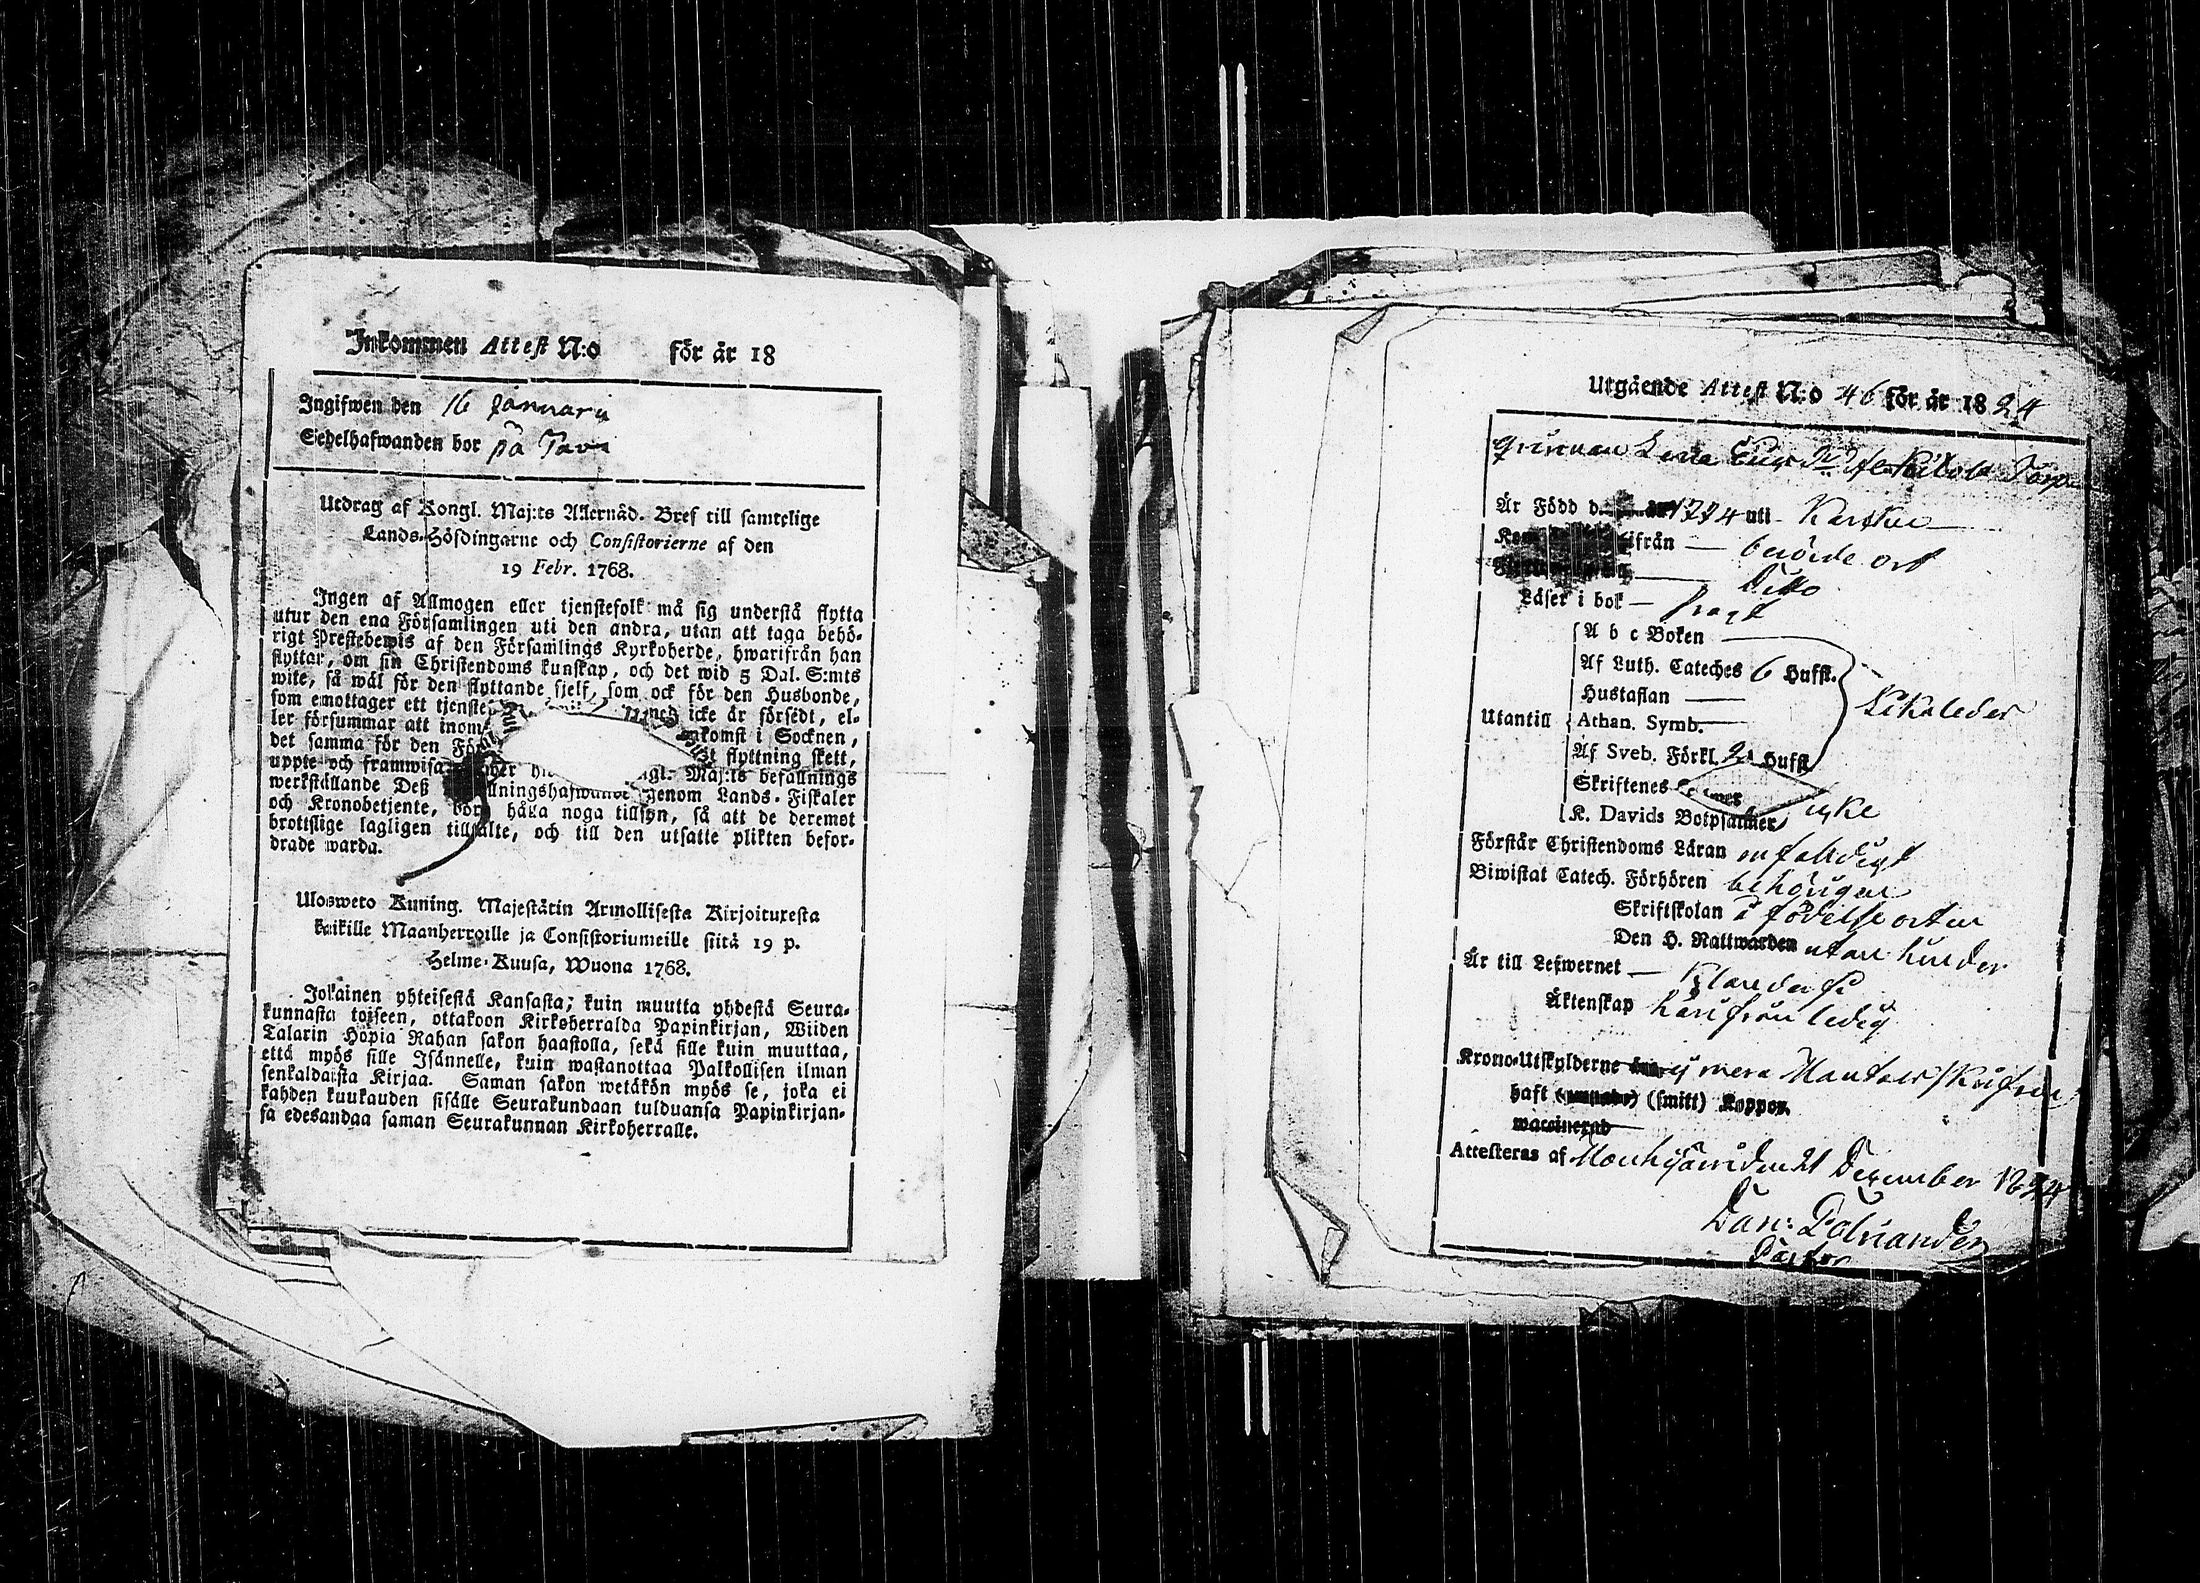 Inkommen Attest N:o för år 18
Ingifwen den 16 Januarii
Sedelhafwanden bor på
Utdrag af Kongl. Maj:ts Allernåd. Bref till samtelige
Lands-Höfdingarne och Consistorierne af den
19 Febr. 1768.
Ingen af Allmogen eller tjenstefolk må sig understå flytta
utur den ena Församlingen uti den andra, utan att taga behö-
rigt Prestebewis af den Församlings Kyrkoherde, hwarifrån han
flyttar, om sin Christendoms kunskap, och det wid 5 Dal. S:mts
wite, så wäl för den flyttande sjelf, som ock för den Husbonde,
som emottager ett icke är försedt, el-
ler försummar att inom ankomst i Socknen,
det samma för den flyttning skett,
uppte och framwisa Maj:ts befallnings
werkställande Deß genom Lands-Fiskaler
och Kronobetjente, böra hålla noga tillsyn, så att de deremot
brottslige lagligen tilltalte, och till den utsatte plikten befor-
drade warda.
Ulosweto Kuning. Majestätin Armollisesta Kirjoituxesta
kaikille Maanherroille ja Consistoriumeille siitä 19 p.
Helme-Kuusa, Wuona 1768.
Jokainen yhteisestä Kansasta; kuin muutta yhdestä Seura-
kunnasta toiseen, ottakoon Kirkoherralda Papinkirjan, Wiiden
Talarin Höpia Rahan sakon haastolla, sekä sille kuin muuttaa,
että myös sille Isännelle, kuin wastanottaa Palkollisen ilman
senkaldaista Kirjaa. Saman sakon wetäkön myös se, joka ei
kahden kuukauden sisälle Seurakundaan tulduansa Papinkirjan-
sa edesandaa saman Seurakunnan Kirkoherralle.
Utgående Attest N:o 46 för år 1824
Lena
Är Född d. år 1774 uti
ifrån — ort
— Ditto
Läser i bok —
A b c Boken
Af Luth. Cateches 6 Hufst.
Hustaflan
Utantill Athan. Symb.
Af Sveb. Förkl. 2 Hufst.
Skriftenes
K. Davids Botpsalmer icke
Förstår Christendoms Läran enfaldigt
Biwistat Catech. Förhören behörigen
Skriftskolan i födelseorten
Den H. Nattwarden utan hinder
Är till Lefwernet — klanderfri
Äktenskap härifrån ledig
Krono-Utskylderne
haft (smitt) Koppor.
waccinerad
Attesteras af Mouhijärvi den 21 December 1824
Dan: Polviander
Pastor